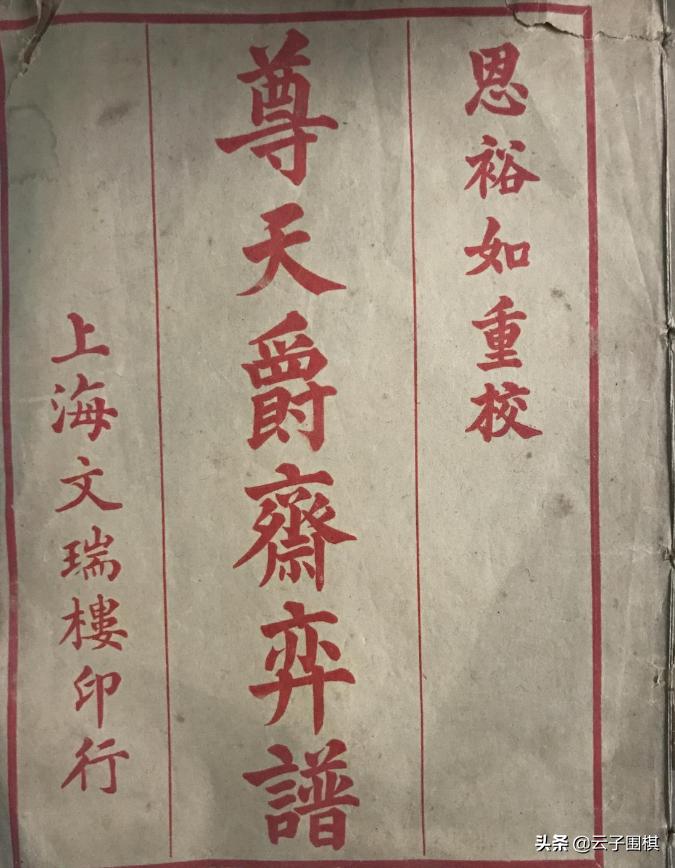 恩裕如重校
尊天爵齋弈譜
上海文瑞樓印行
头条 @云子围棋